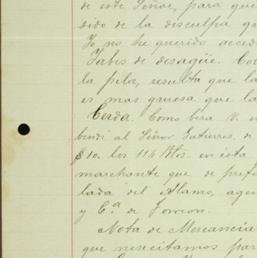 de este Señor, para que
dido de la disculpa q
Yo no he querido acced
Jabes de desagüe. Co
la pila, resulta que la
es mas gruesa que la
Cerda. Como bera V. v
bendi al Señor Gutierres, d
$10. los 114 Ktos. en esta
marchante que de pref
lada del Alamo, agen
y Cª de Torreon.
Nota de Mercancia
que nescitamos par